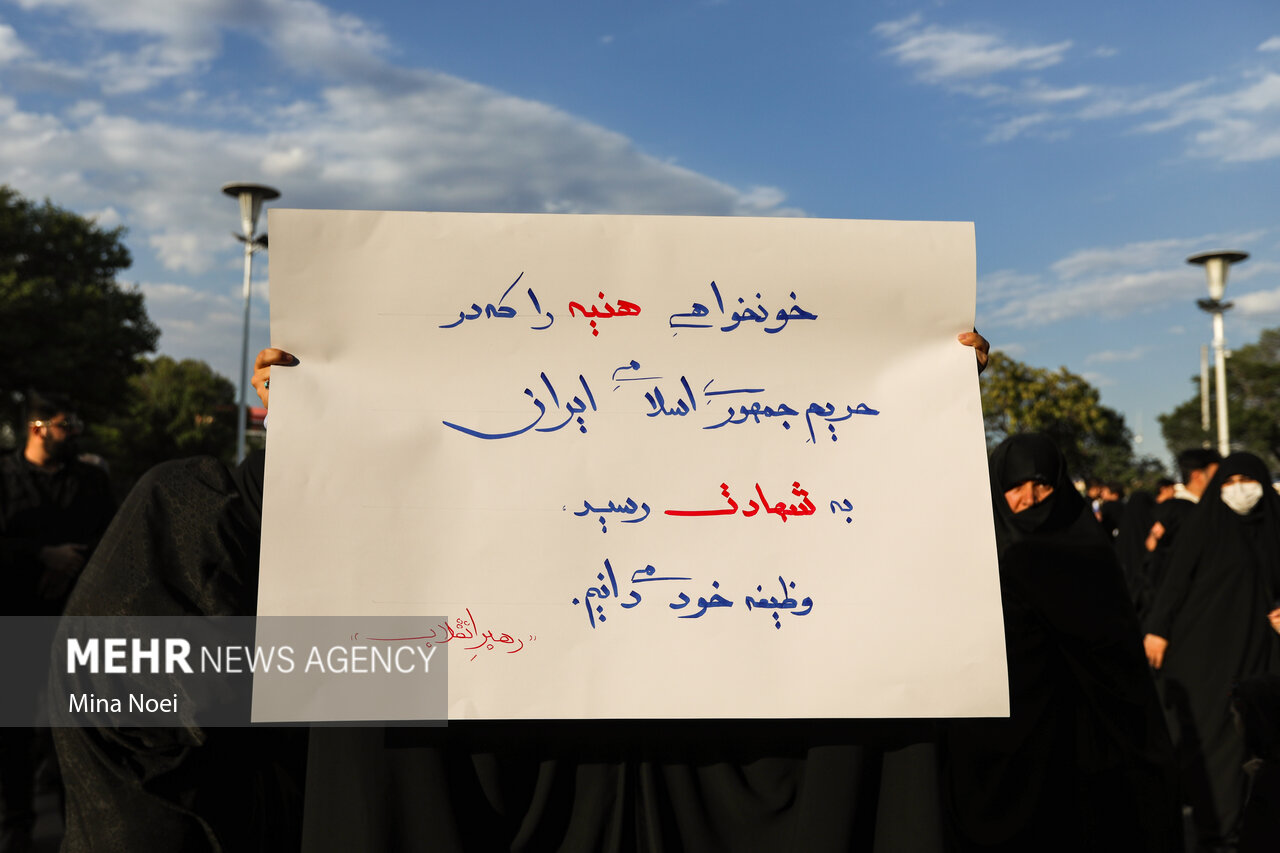 خونخواهیِ هنیه را که در
حریمِ جمهوریِ اسلامیِ ایران
به شهادت رسید،
وظیفه خود می دانیم.
"رهبرِ انقلاب"
MEHR NEWS AGENCY
Mina Noei